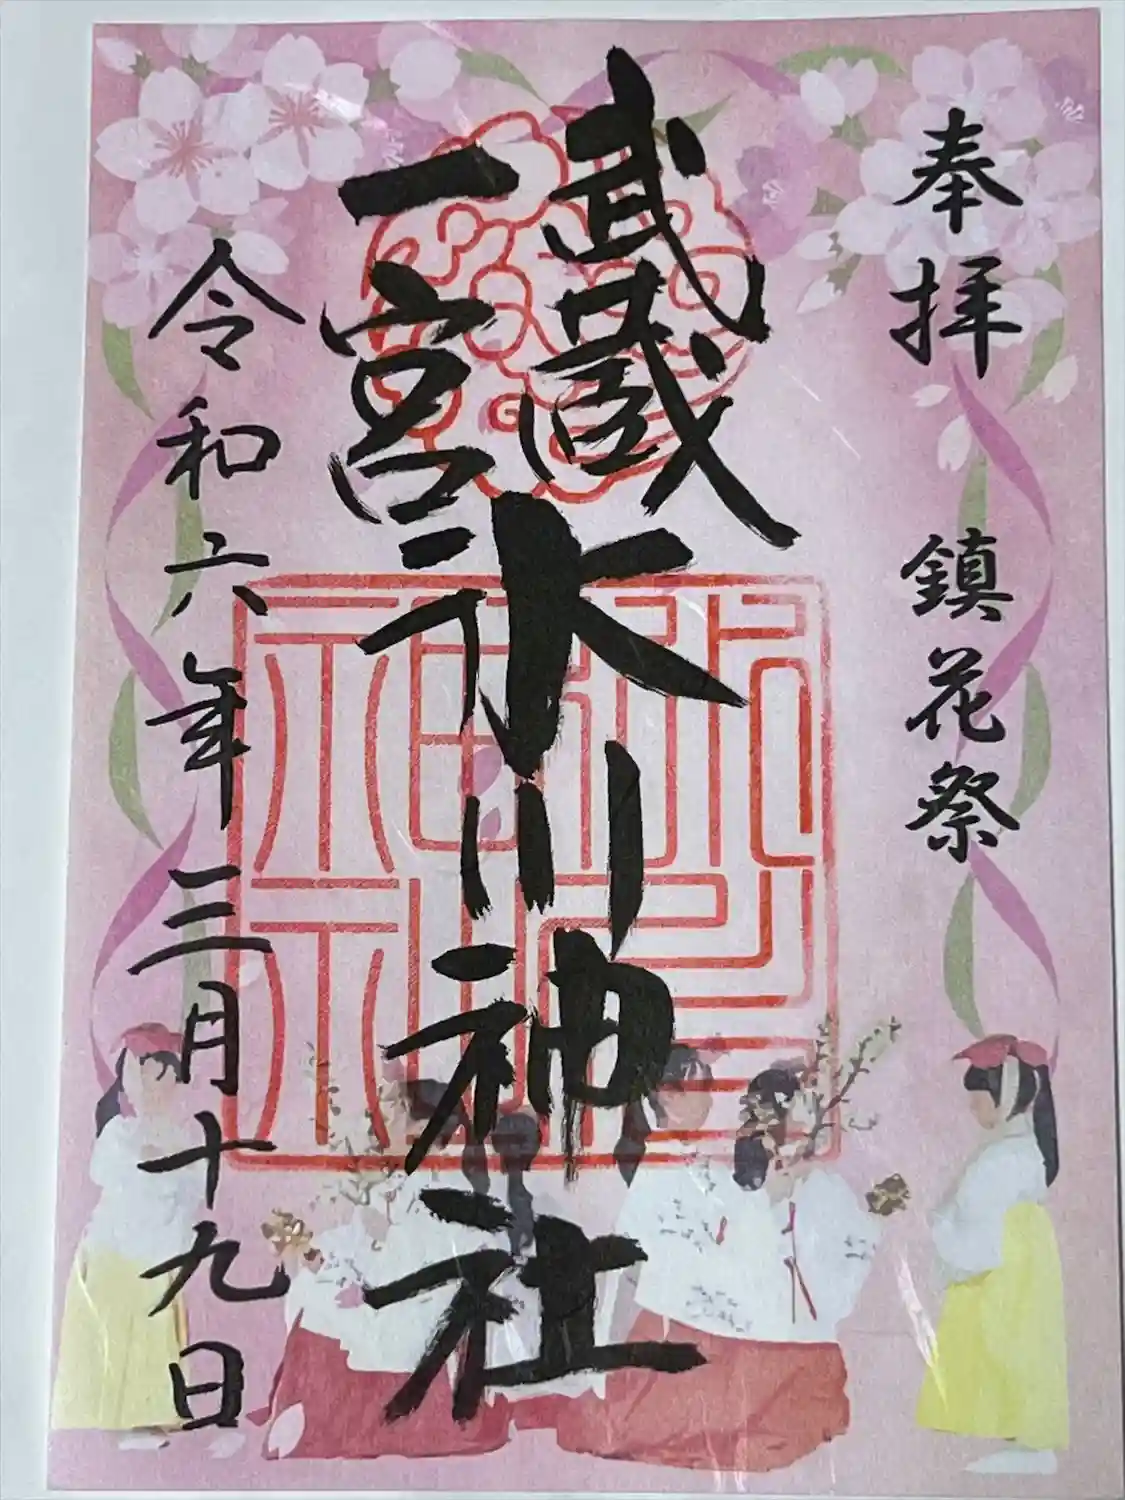 奉拝　鎮花祭
武蔵
一宮
氷川神社
令和六年三月十九日